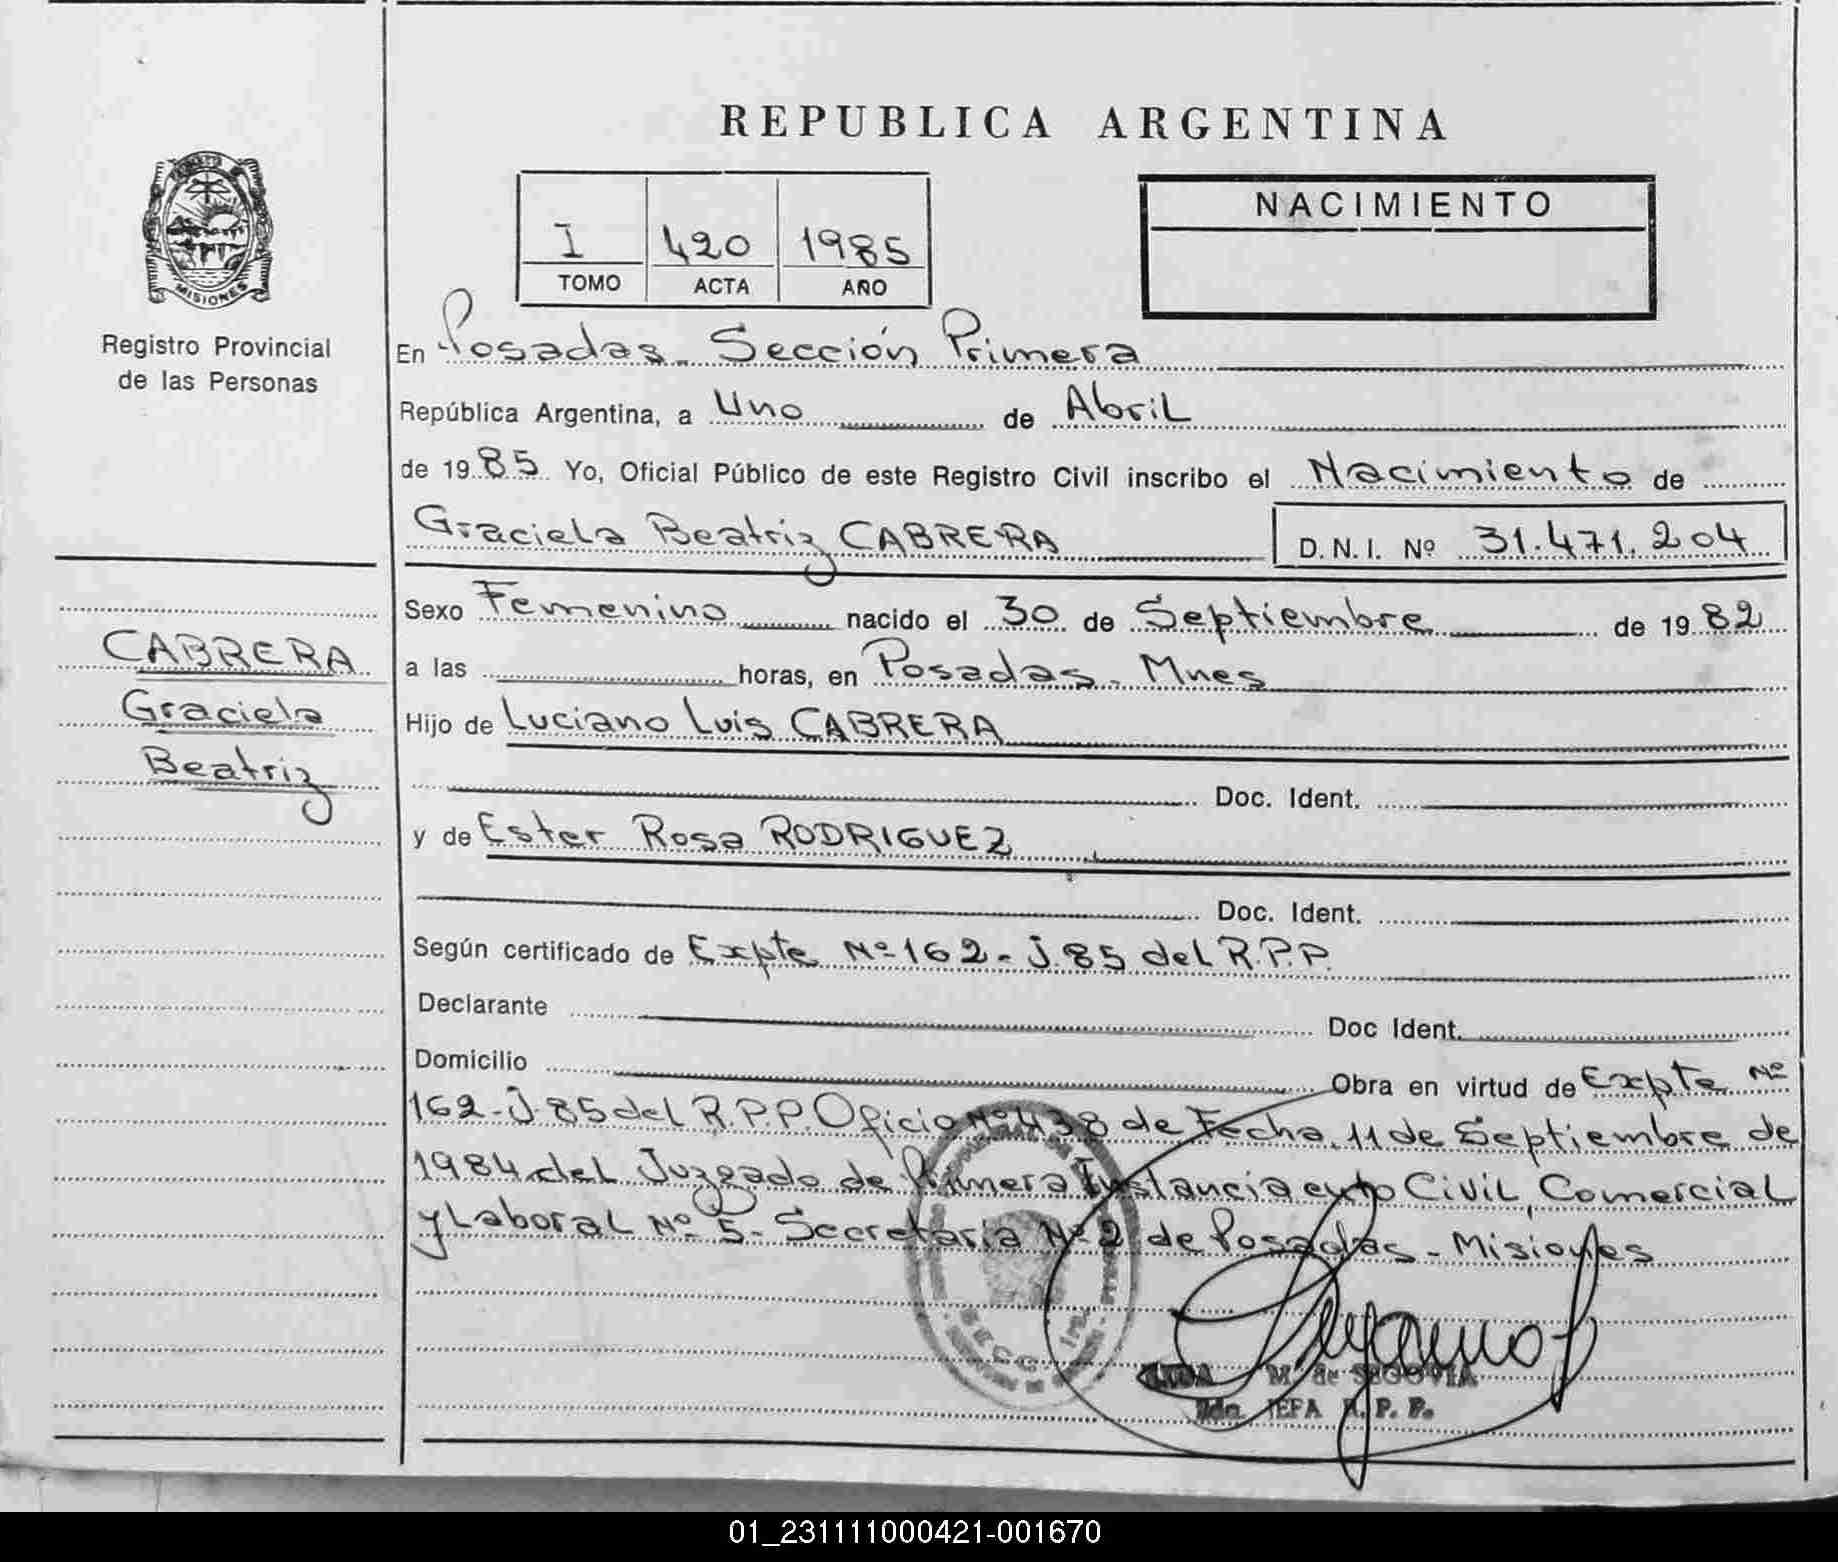 REPUBLICA ARGENTINA
MISIONES
Registro Provincial
de las Personas
I 420 1985
TOMO ACTA AÑO
NACIMIENTO
En Posadas - Sección Primera
República Argentina, a Uno de Abril
de 1985 Yo, Oficial Público de este Registro Civil inscribo el Nacimiento de
Graciela Beatriz CABRERA D.N.I. Nº 31.471.204
CABRERA
Graciela
Beatriz
Sexo Femenino nacido el 30 de Septiembre de 1982
a las horas, en Posadas - Mnes
Hijo de Luciano Luis CABRERA
Doc. Ident.
y de Ester Rosa RODRIGUEZ
Doc. Ident.
Según certificado de Expte Nº 162 - J. 85 del R.P.P.
Declarante Doc Ident.
Domicilio Obra en virtud de Expte Nº
162 - J - 85 del R.P.P. Oficio Nº 438 de Fecha 11 de Septiembre de
1984 del Juzgado de Primera Instancia en lo Civil, Comercial
y Laboral Nº 5 - Secretaria Nº 2 de Posadas - Misiones
M. de SEGOVIA
JEFA R. P. P.
01_231111000421-001670